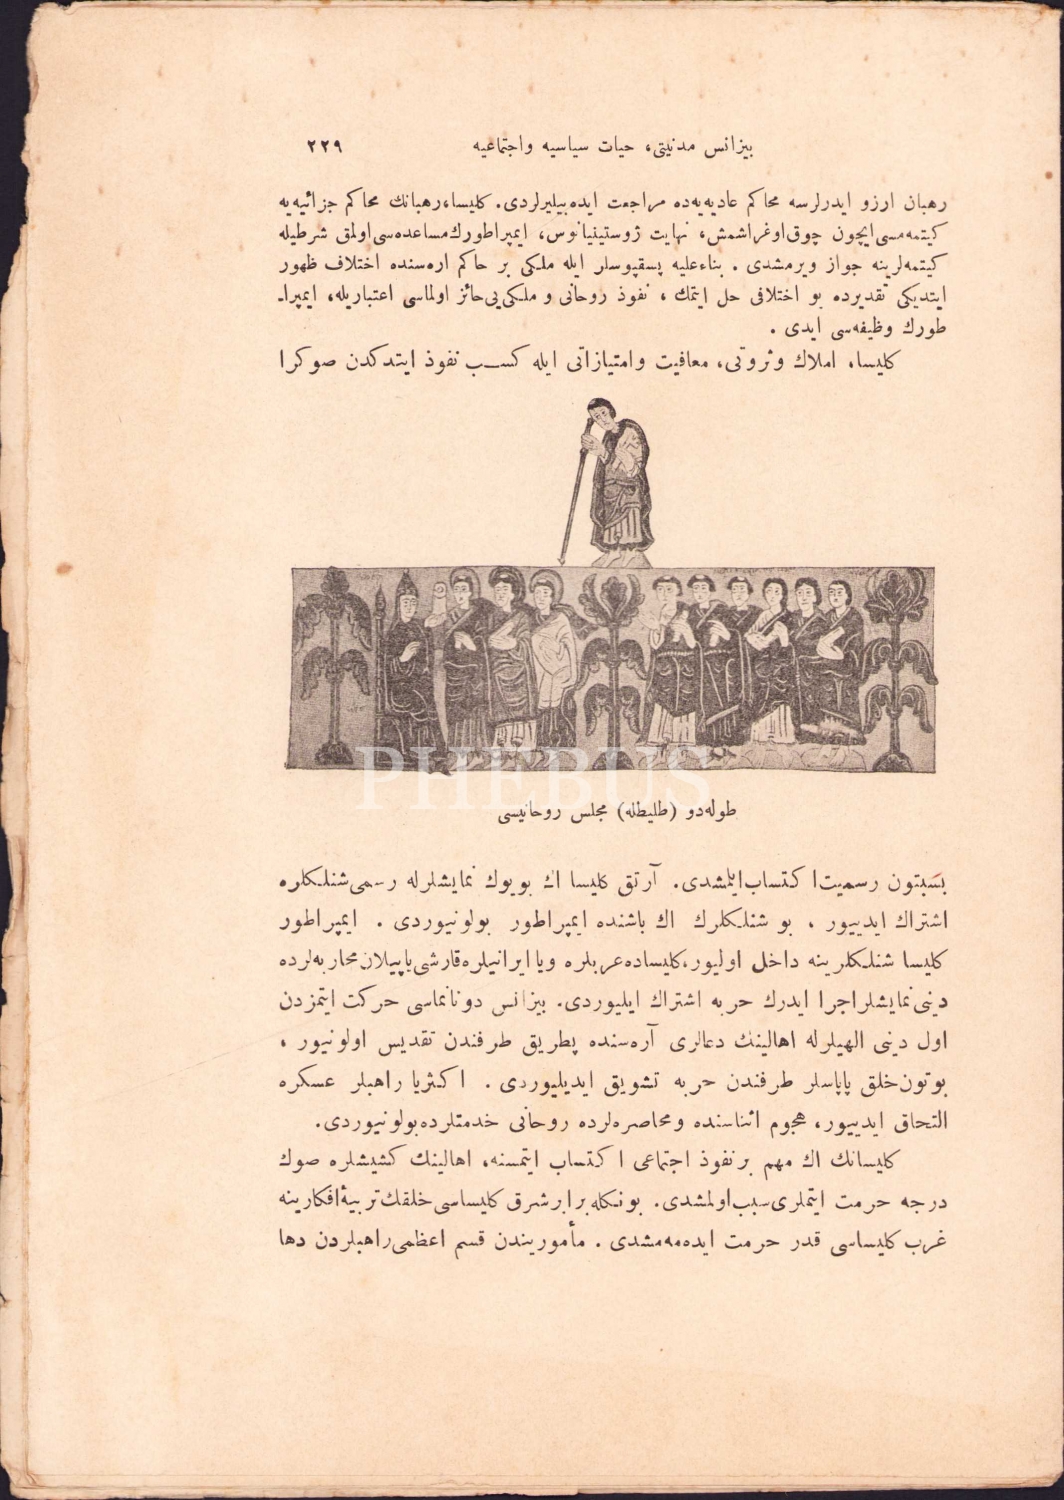 بیزانس مدنیتی، حیات سیاسیه واجتماعیه ٢٢٩
رهبان ارزو ایدرلرسه محاکم عادیه‌یه‌ده مراجعت ایده‌بیلیرلردی. کلیسا، رهبانك محاکم جزائیه‌یه
کیتمه‌مسی ایچون چوق اوغراشمش، نهایت ژوستینیانوس، ایمپراطورك مساعده‌سی اولمق شرطیله
کیتمه‌لرینه جواز ویرمشدی . بناءعلیه پسقپوسلر ایله ملکی بر حاکم اره‌سنده اختلاف ظهور
ایتدیکی تقدیرده بو اختلافی حل ایتمك ، نفوذ روحانی و ملکی‌یی حائز اولماسی اعتباریله، ایمپرا-
طورك وظیفه‌سی ایدی .
کلیسا، املاك وثروتی، معافیت وامتیازاتی ایله کسب نفوذ ایتدکدن صوکرا
PHEBUS
طوله‌دو (طلیطله) مجلس روحانیسی
بسبتون رسمیت اکتساب ایلمشدی. آرتق کلیسا اك بویوك نمایشلرله رسمی شنلکلره
اشتراك ایدییور . بو شنلکلرك اك باشنده ایمپراطور بولونیوردی . ایمپراطور
کلیسا شنلکلرینه داخل اولیور، کلیساده عربلره ویا ایرانیلره قارشی یاپیلان محاربه‌لرده
دینی نمایشلر اجرا ایدرك حربه اشتراك ایلیوردی. بیزانس دونانماسی حرکت ایتمزدن
اول دینی الهیلرله اهالینك دعالری آره‌سنده پطریق طرفندن تقدیس اولونیور ،
بوتون خلق پاپاسلر طرفندن حربه تشویق ایدیلیوردی . اکثریا راهبلر عسکره
التحاق ایدییور، هجوم اثناسنده ومحاصره‌لرده روحانی خدمتلرده بولونیوردی.
کلیسانك اك مهم بر نفوذ اجتماعی اکتساب ایتمسنه، اهالینك کشیشلره صوك
درجه حرمت ایتملری سبب اولمشدی. بونکله برابر شرق کلیساسی خلقك تربیۀ افکارینه
غرب کلیساسی قدر حرمت ایده‌مه‌مشدی . مأموریندن قسم اعظمی راهبلردن دها